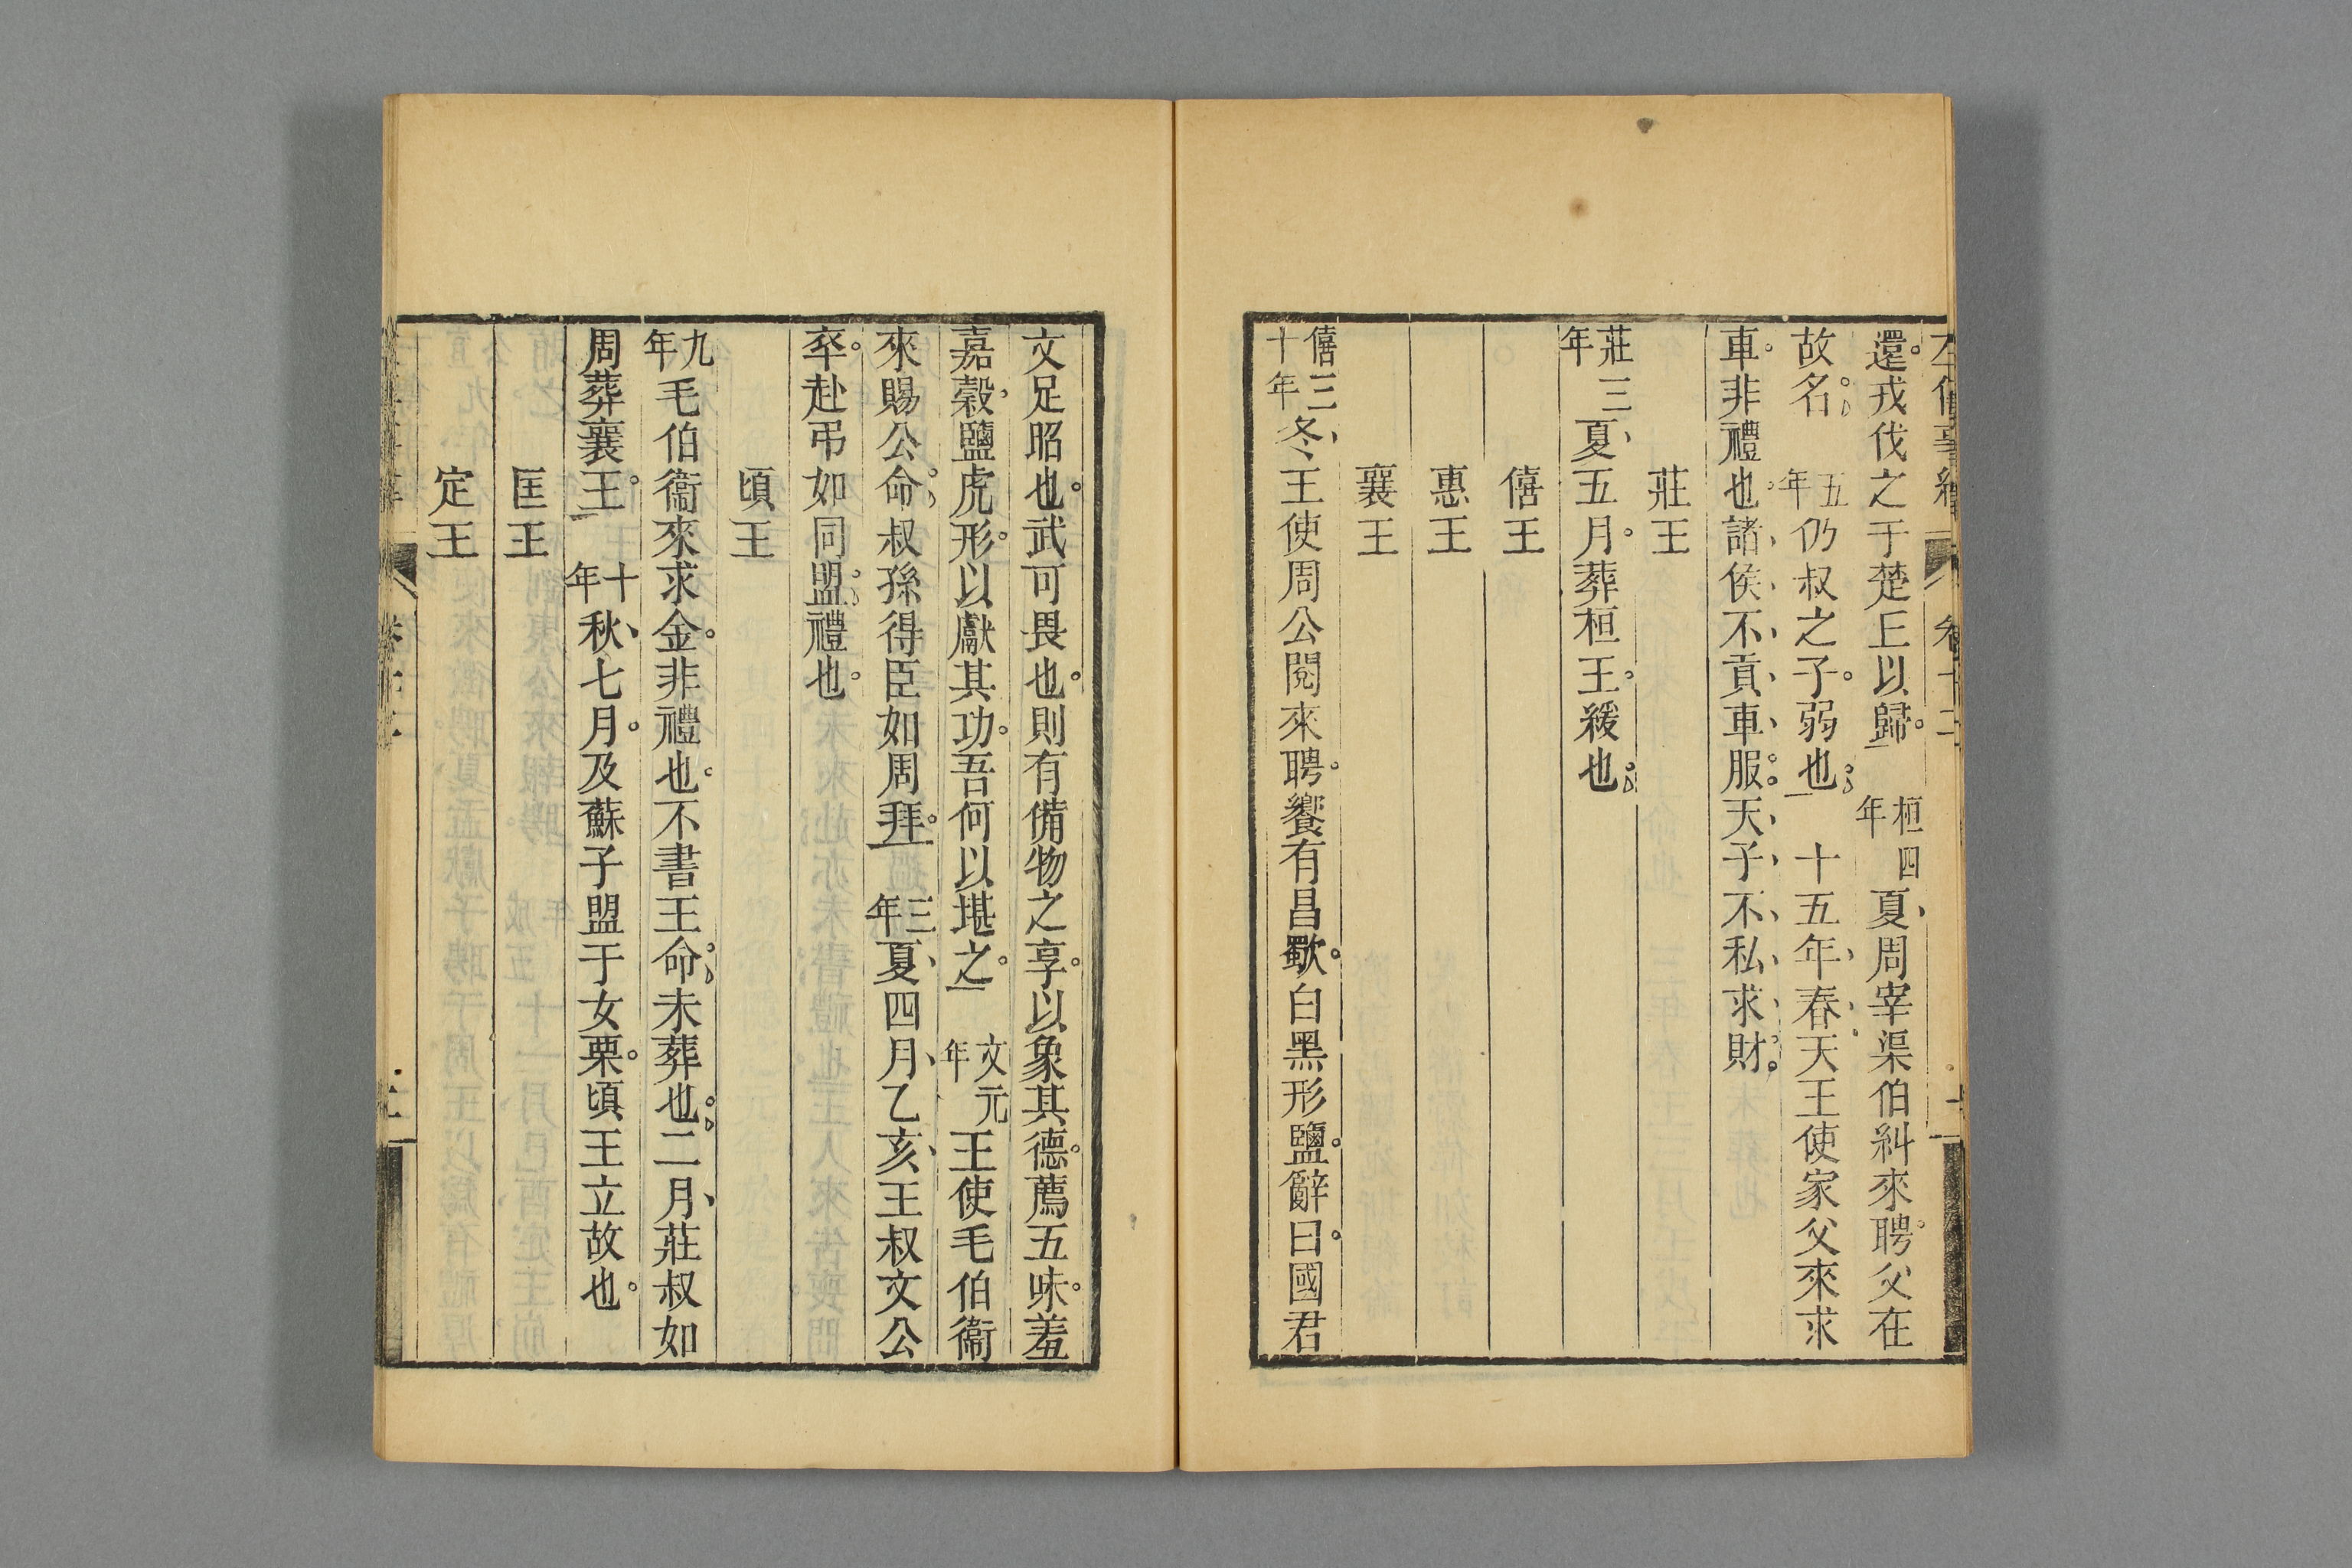 還戎伐之于楚丘以歸桓四年夏周宰渠伯糾來聘父在
故名五年仍叔之子弱也十五年春天王使家父來求
車非禮也諸侯不貢車服天子不私求財
莊王
莊三年夏五月葬桓王緩也
僖王
惠王
襄王
僖三十年冬王使周公閱來聘饗有昌歜白黑形鹽辭曰國君
文足昭也武可畏也則有備物之享以象其德薦五味羞
嘉穀鹽虎形以獻其功吾何以堪之文元年王使毛伯衞
來賜公命叔孫得臣如周拜三年夏四月乙亥王叔文公
卒赴弔如同盟禮也
頃王
九年毛伯衞來求金非禮也不書王命未葬也二月莊叔如
周葬襄王十年秋七月及蘇子盟于女栗頃王立故也
匡王
定王